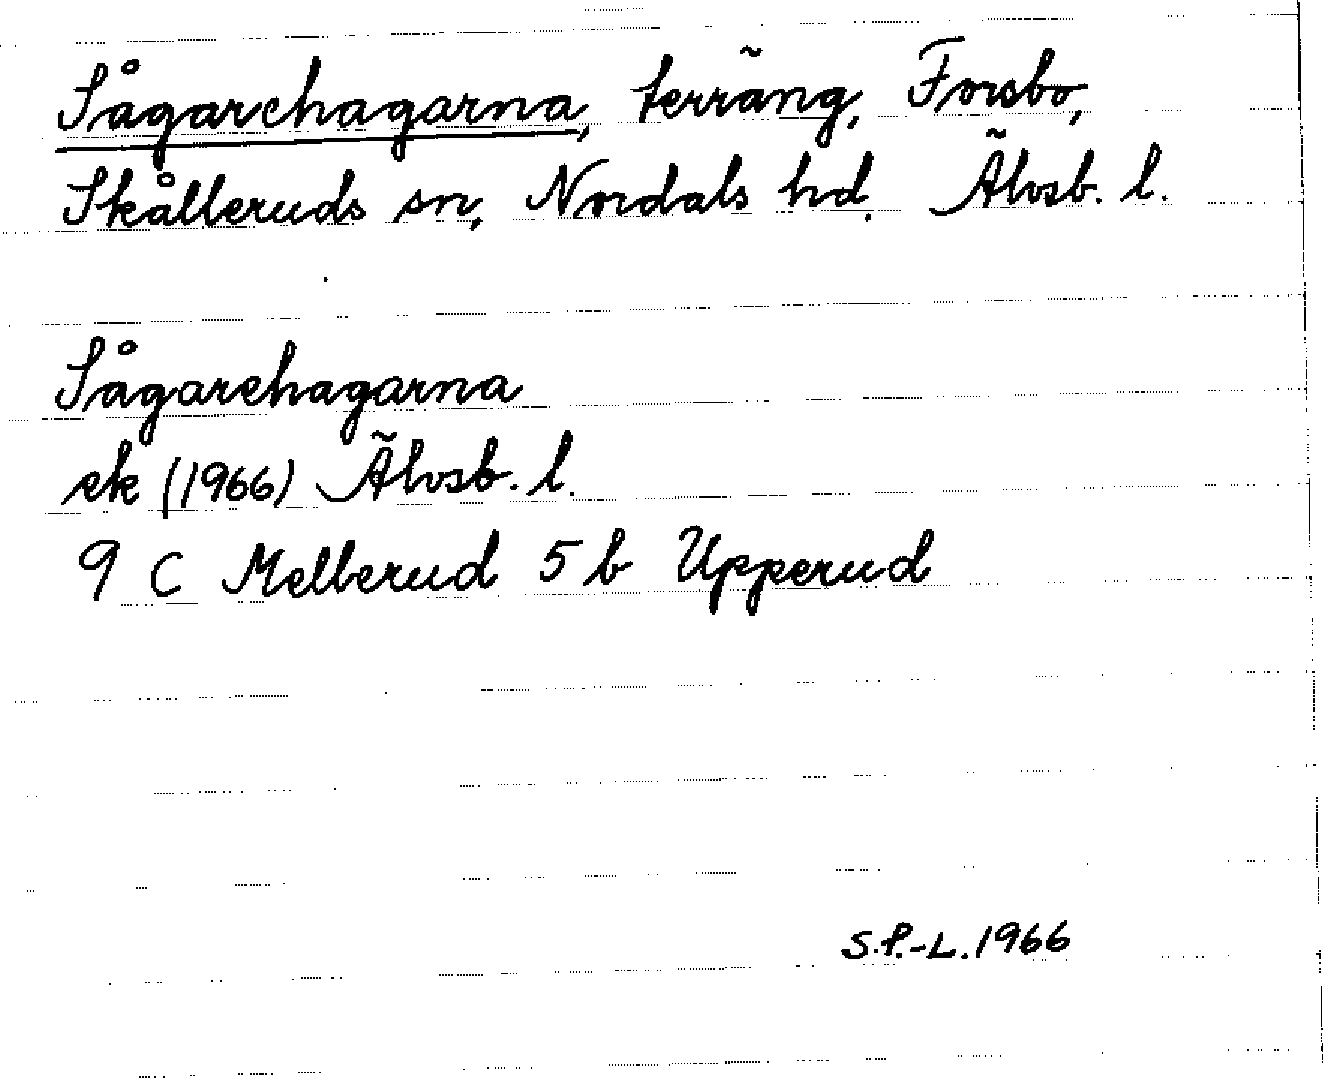 Sågarehagarna, terräng, Forsbo,
Skålleruds sn, Nordals hd. Älvsb. l.
Sågarehagarna
ek (1966) Älvsb. l.
9 C Mellerud 5 b Upperud
S.P.-L. 1966